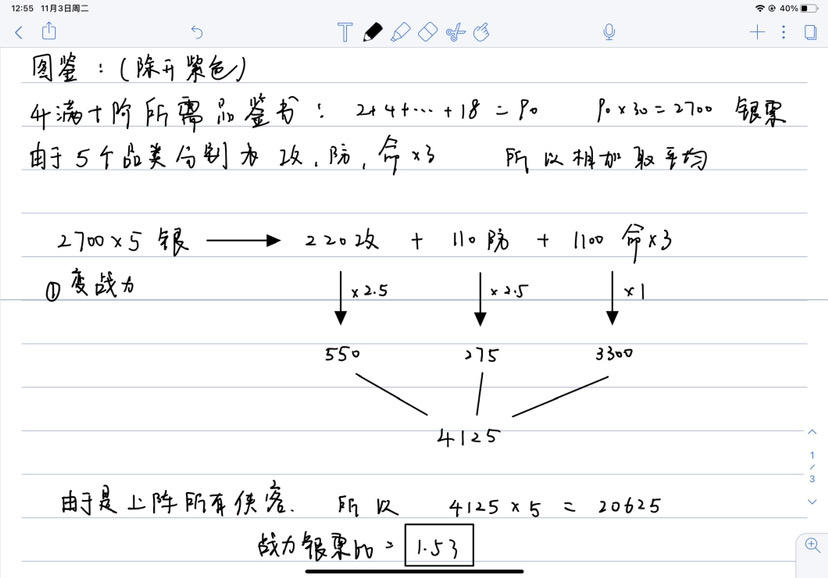 12:55 11月3日周二
40%
图鉴：(除开紫色)
升满十阶所需品鉴书： 2+4+…+18=90 90×30=2700 银票
由于5个品类分别为 攻,防,命×3 所以相加取平均
2700×5 银 → 220攻 + 110防 + 1100 命×3
① 变战力
×2.5 ×2.5 ×1
550 275 3300
4125
由于是上阵所有侠客. 所以 4125×5 = 20625
战力银票比 = 1.53
1/3